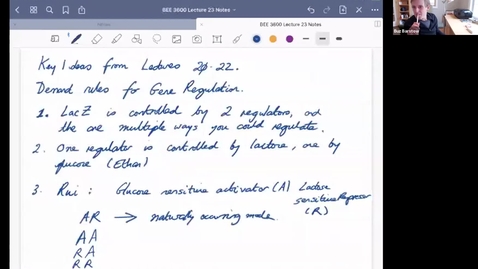 BEE 3600 Lecture 23 Notes
BEE 3600 Lecture 23 Notes
BEE 3600 Lecture 23 Notes
Buz Barstow
Key Ideas from Lectures 20-22.
Demand rules for Gene Regulation.
1. LacZ is controlled by 2 regulators, and
the are multiple ways you could regulate.
2. One regulator is controlled by lactose, one by
glucose (Ethan)
3. Rui: Glucose sensitive activator (A) Lactose
sensitive Repressor
(R)
AR → naturally occuring mode
AA
RA
RR